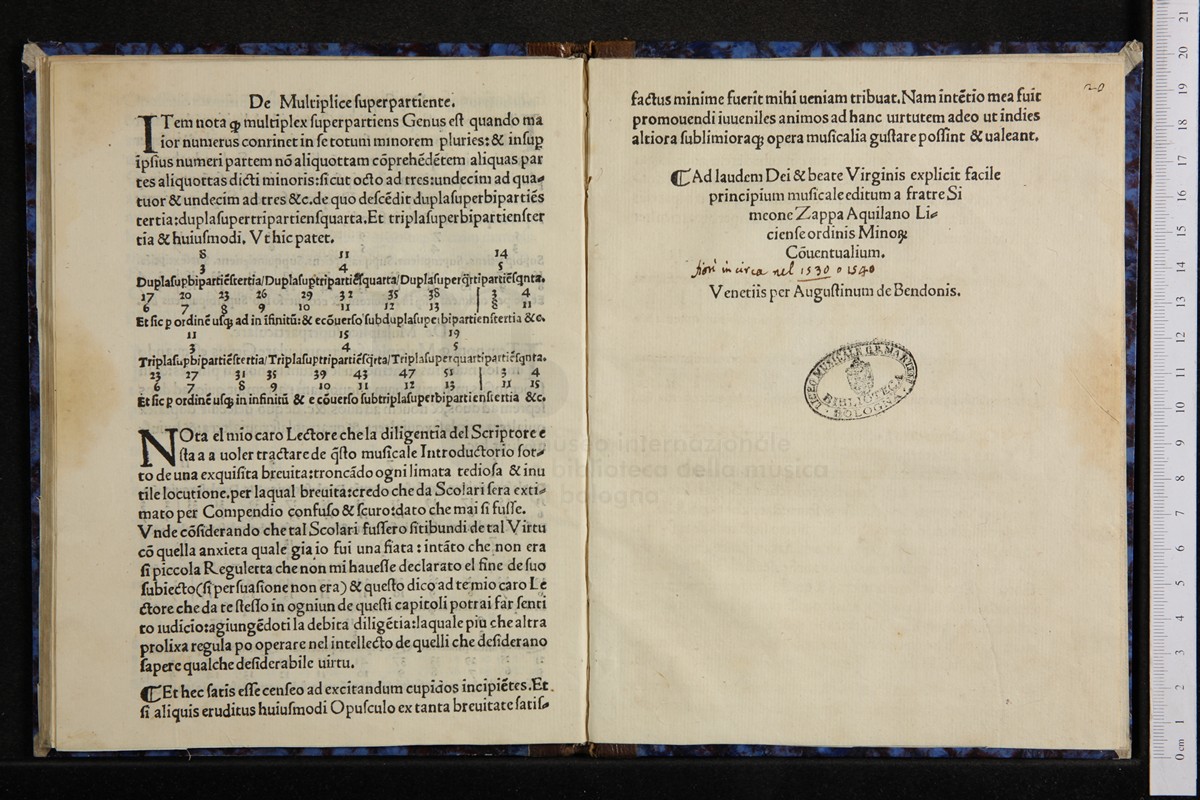 De Multiplice ſuperpartiente.
ITem nota ꝙ multiplex ſuperpartiens Genus eſt quando ma
ior numerus conrinet in ſe totum minorem pluries: & inſuꝑ
ipſius numeri partem nō aliquottam cōprehēdētem aliquas par
tes aliquottas dicti minoris: ſicut octo ad tres: undecim ad qua⸗
tuor & undecim ad tres &c. de quo deſcēdit duplaſuperbipartiēs
tertia: duplaſupertripartienſquarta. Et triplaſuperbipartienſter
tia & huiuſmodi. Vt hic patet.
8 11 14
3 4 5
Duplaſupbipartiēſtertia/Duplaſuptripartiēſquarta/Duplaſuperq̄rtipartiēſqnta.
17 20 23 26 29 32 35 38 | 3 4
6 7 8 9 10 11 12 13 | 8 11
Et ſic ꝑ ordinē uſqꝫ ad in īfinitū: & ecōuerſo ſubduplaſuperbipartienſtertia &c.
11 15 19
3 4 5
Triplaſupbipartiēſtertia/Triplaſuptripartiēſq̄rta/Triplaſuperquartipartiēſqnta.
23 27 31 35 39 43 47 51 | 3 4
6 7 8 9 10 11 12 13 | 11 15
Et ſic ꝑ ordinē uſqꝫ in infinitū & e cōuerſo ſubtriplaſuperbipartienſtertia &c.
NOta el mio caro Lectore che la diligentia del Scriptore e
ſta a a uoler tractare de q̄ſto muſicale Introductorio ſot⸗
to de una exquiſita breuita: troncādo ogni limata tedioſa & inu
tile locutione. per laqual breuita: credo che da Scolari ſera exti⸗
mato per Compendio confuſo & ſcuro: dato che mai ſi fuſſe.
Vnde cōſiderando che tal Scolari fuſſero ſitibundi de tal Virtu
cō quella anxieta quale gia io fui una fiata: intāto che non era
ſi piccola Reguletta che non mi haueſſe declarato el fine de ſuo
ſubiecto (ſi perſuaſione non era) & queſto dico ad te mio caro Le
ctore che da te ſteſſo in ogniun de queſti capitoli potrai far ſenti
to iudicio: agiungēdoti la debita diligētia: laquale piu che altra
prolixa regula po operare nel intellecto de quelli che deſiderano
ſapere qualche deſiderabile uirtu.
⸿Et hec ſatis eſſe cenſeo ad excitandum cupidos incipiētes. Et
ſi aliquis eruditus huiuſmodi Opuſculo ex tanta breuitate ſatiſ⸗
factus minime fuerit mihi ueniam tribuat. Nam intētio mea fuit
promouendi iuueniles animos ad hanc uirtutem adeo ut indies
altiora ſublimioraqꝫ opera muſicalia guſtare poſſint & ualeant.
⸿Ad laudem Dei & beate Virginis explicit facile
principium muſicale editum a fratre Si
meone Zappa Aquilano Li⸗
cienſe ordinis Minoꝝ
Cōuentualium.
fiorì in circa nel 1530 o 1540
Venetiis per Auguſtinum de Bendonis.
LICEO MUSICALE G.B. MARTINI
BIBLIOTECA
BOLOGNA
museo internazionale
biblioteca della musica
bologna
0 cm 1 2 3 4 5 6 7 8 9 10 11 12 13 14 15 16 17 18 19 20 21